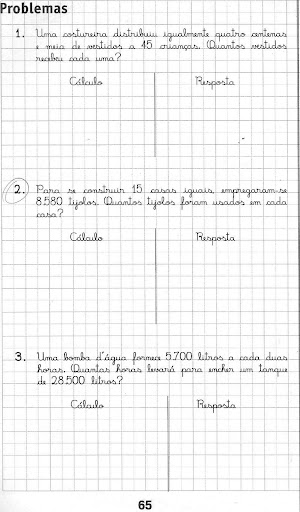 Problemas
1. Uma costureira distribuiu igualmente quatro centenas
e meia de vestidos a 45 crianças. Quantos vestidos
recebeu cada uma?
Cálculo Resposta
2. Para se construir 15 casas iguais, empregaram-se
8.580 tijolos. Quantos tijolos foram usados em cada
casa?
Cálculo Resposta
3. Uma bomba d'água fornece 5.700 litros a cada duas
horas. Quantas horas levará para encher um tanque
de 28.500 litros?
Cálculo Resposta
65